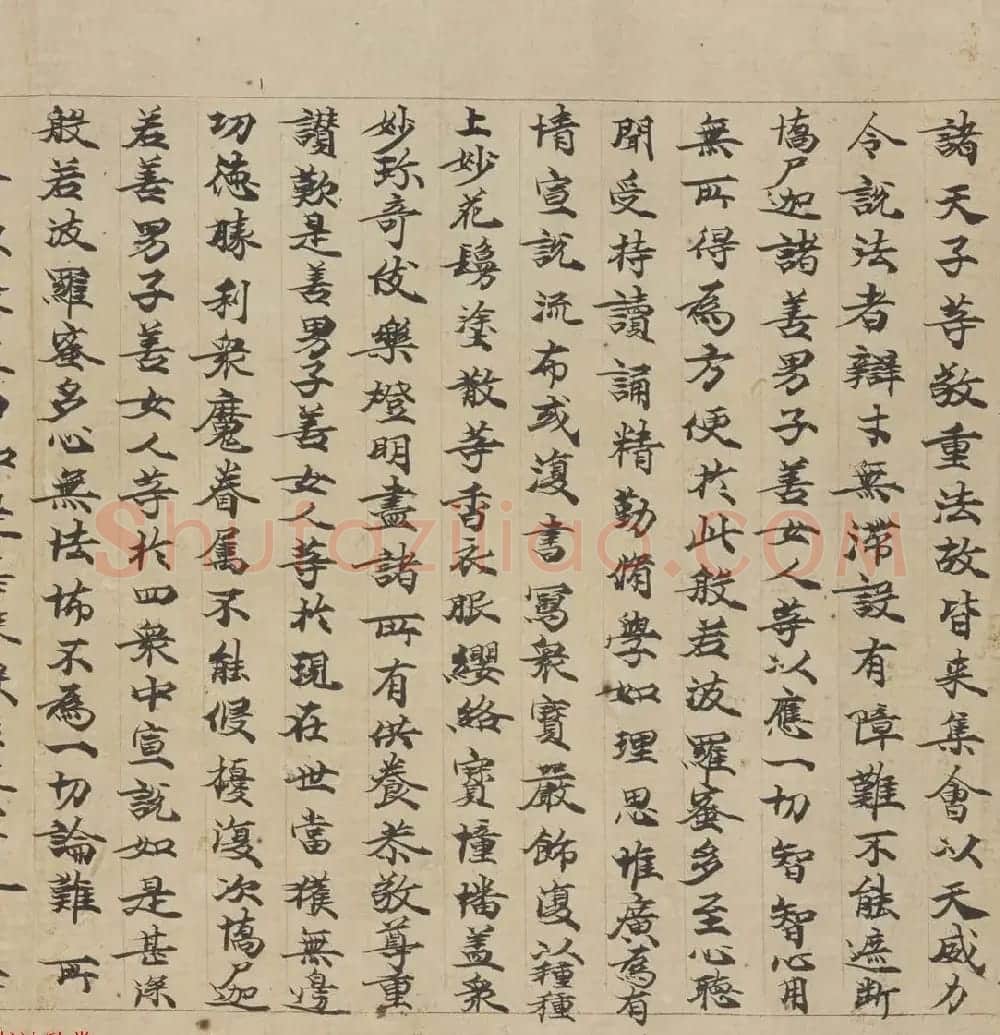 諸天子等敬重法故皆来集會以天威力
令說法者辯才無滯設有障難不能遮断
憍尸迦諸善男子善女人等以應一切智智心用
無所得為方便於此般若波羅蜜多至心聽
聞受持讀誦精勤脩學如理思惟廣為有
情宣說流布或復書寫衆寶嚴飾復以種種
上妙花鬘塗散等香衣服纓絡寶幢幡盖衆
妙珎奇伎樂燈明盡諸所有供養恭敬尊重
讚歎是善男子善女人等於現在世當獲無邊
功徳勝利衆魔眷属不能侵擾復次憍尸迦
若善男子善女人等於四衆中宣說如是甚深
般若波羅蜜多心無怯怖不為一切論難所
Shufaziliao.COM